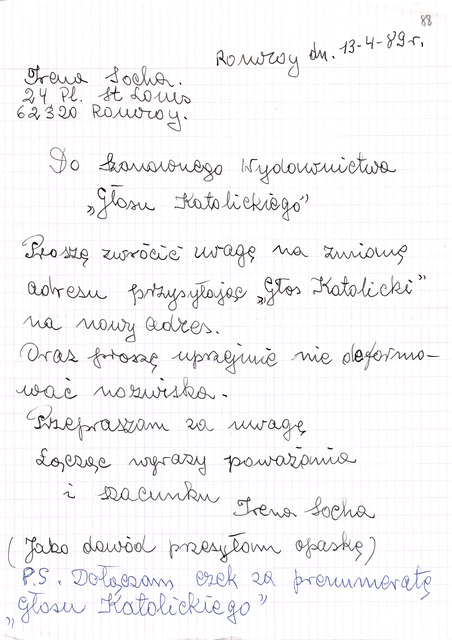 88
Rouvroy dn. 13-4-89r.
Irena Socha.
24 Pl. St Louis
62320 Rouvroy.
Do szanownego Wydawnictwa
„Głosu Katolickiego”
Proszę zwrócić uwagę na zmianę
adresu przysyłając „Głos Katolicki”
na nowy adres.
Oraz proszę uprzejmie nie deformo-
wać nazwiska.
Przepraszam za uwagę
Łącząc wyrazy poważania
i szacunku Irena Socha
(Jako dowód przesyłam opaskę)
P.S. Dołączam czek za prenumeratę
„Głosu Katolickiego”